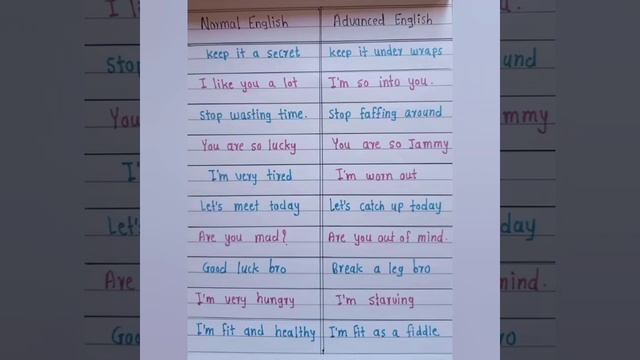 Normal English Advanced English
Keep it a secret keep it under wraps
I like you a lot I'm so into you.
Stop wasting time. Stop faffing around
You are so lucky You are so Jammy
I'm very tired I'm worn out
Let's meet today Let's catch up today
Are you mad? Are you out of mind.
Good luck bro Break a leg bro
I'm very hungry I'm starving
I'm fit and healthy I'm fit as a fiddle